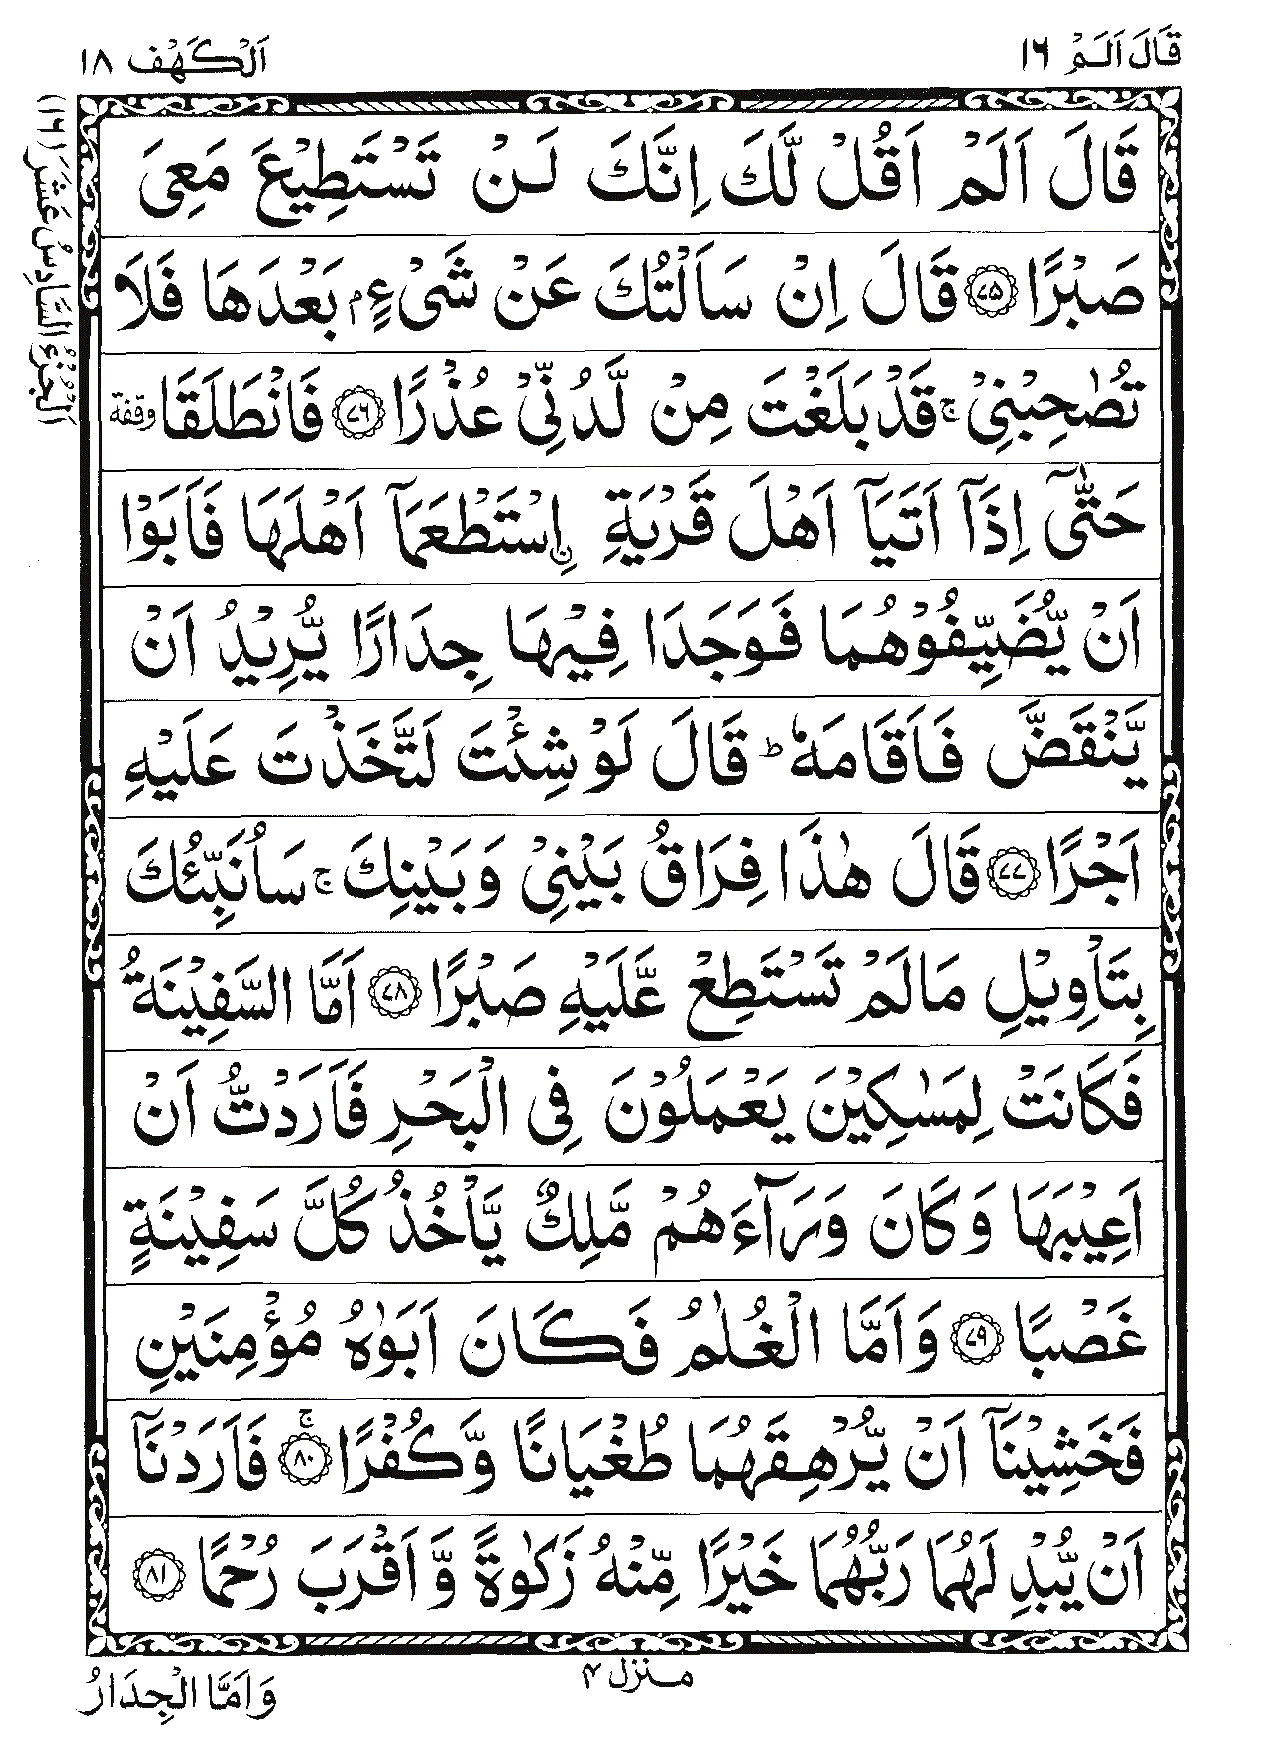 قَالَ اَلَمْ ١٦
اَلْكَهْف ١٨
اَلْجُزْءُ السَّادِسُ عَشَرَ (١٦)
قَالَ اَلَمْ اَقُلْ لَّكَ اِنَّكَ لَنْ تَسْتَطِيْعَ مَعِىَ
صَبْرًا ﴿٧٥﴾ قَالَ اِنْ سَاَلْتُكَ عَنْ شَىْءٍۭ بَعْدَهَا فَلَا
تُصٰحِبْنِىْ ۚ قَدْ بَلَغْتَ مِنْ لَّدُنِّىْ عُذْرًا ﴿٧٦﴾ فَانْطَلَقَا وقفة
حَتّٰٓى اِذَآ اَتَيَآ اَهْلَ قَرْيَةِ ۨاسْتَطْعَمَآ اَهْلَهَا فَاَبَوْا
اَنْ يُّضَيِّفُوْهُمَا فَوَجَدَا فِيْهَا جِدَارًا يُّرِيْدُ اَنْ
يَّنْقَضَّ فَاَقَامَهٗ ؕ قَالَ لَوْ شِئْتَ لَتَّخَذْتَ عَلَيْهِ
اَجْرًا ﴿٧٧﴾ قَالَ هٰذَا فِرَاقُ بَيْنِىْ وَبَيْنِكَ ۚ سَاُنَبِّئُكَ
بِتَاْوِيْلِ مَا لَمْ تَسْتَطِعْ عَّلَيْهِ صَبْرًا ﴿٧٨﴾ اَمَّا السَّفِيْنَةُ
فَكَانَتْ لِمَسٰكِيْنَ يَعْمَلُوْنَ فِى الْبَحْرِ فَاَرَدْتُّ اَنْ
اَعِيْبَهَا وَكَانَ وَرَآءَهُمْ مَّلِكٌ يَّاْخُذُ كُلَّ سَفِيْنَةٍ
غَصْبًا ﴿٧٩﴾ وَاَمَّا الْغُلٰمُ فَكَانَ اَبَوٰهُ مُؤْمِنَيْنِ
فَخَشِيْنَآ اَنْ يُّرْهِقَهُمَا طُغْيَانًا وَّكُفْرًا ۚ﴿٨٠﴾ فَاَرَدْنَآ
اَنْ يُّبْدِلَهُمَا رَبُّهُمَا خَيْرًا مِّنْهُ زَكٰوةً وَّاَقْرَبَ رُحْمًا ﴿٨١﴾
منزل ۴
وَاَمَّا الْجِدَارُ